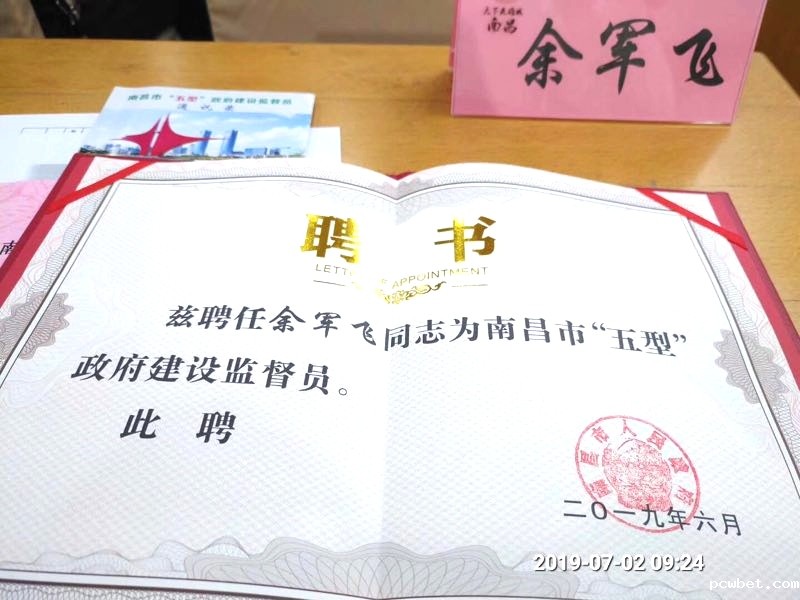 天下英雄城
南昌
余军飞
南昌市“五型”政府建设监督员
通讯录
聘书
LETTER OF APPOINTMENT
兹聘任余军飞同志为南昌市“五型”
政府建设监督员。
此聘
南昌市人民政府
二〇一九年六月
2019-07-02 09:24
pcwbet.com